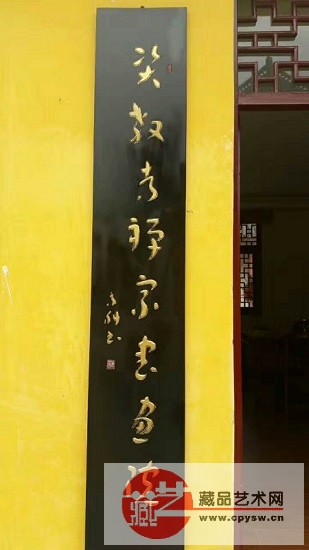 资教寺禅宗书画院
藏品艺术网
www.cpysw.cn